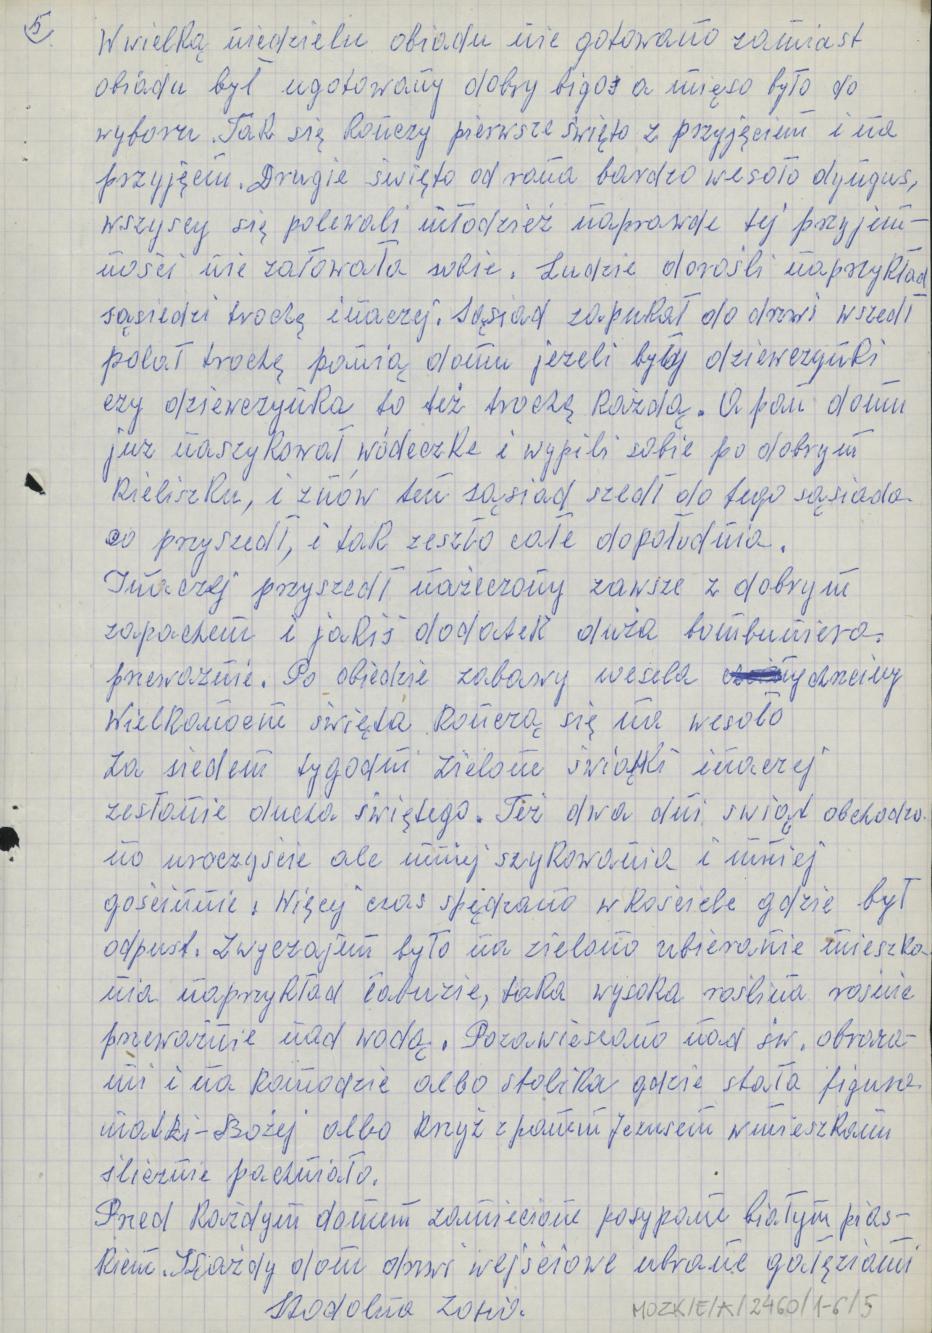 5
Wwielką niedzielu obiadu nie gotowano zamiast
obiadu był ugotowany dobry bigos a mięso było do
wyboru. Tak się kończy pierwsze święto z przyjęciem i na
przyjęciu. Drugie święto od rana bardzo wesoło dyngus,
wszyscy się polewali młodzież naprawde tej przyjem-
ności nie załowała sobie. Ludzie dorośli naprzykład
sąsiedzi trochą inaczej. Sąsiad zapukał do drzwi wszedł
polał trochą panią domu jeżeli były dziewczynki
czy dziewczynka to też trochą każdą. A pan domu
już naszykował wódeczke i wypili sobie po dobrym
kieliszku, i znów ten sąsiad szedł do tego sąsiada
co przyszedł, i tak zeszło całe dopołudnia.
Inaczej przyszedł nażeczony zawsze z dobrym
zapachem i jakiś dodatek duża bombuniera.
przeważnie. Po obiedzie zabawy wesela chrzciny
Wielkanocne święta kończą się na wesoło
Za siedem tygodni zielone świątki inaczej
zesłanie ducha świętego. Też dwa dni swiąt obchodzo
no uroczyście ale mniej szykowania i mniej
gościnnie. Więcy czas spędzano w kościele gdzie był
odpust. Zwyczajem było na zielono ubieranie mieszka-
nia naprzykład łabuzie, taka wysoka roślina rośnie
przeważnie nad wodą. Pozawieszano nad św. obraza-
mi i na komodzie albo stolika gdzie stała figura
matki-Bożej albo krzyż z panem Jezusem w mieszkaniu
ślicznie pachniało.
Przed każdym domem zamiecione posypane białym pias-
kiem. Każdy dom drzwi wejściowe ubrane gałęziami
Stodolna Zofia.
MOZK/E/A/2460/1-6/5